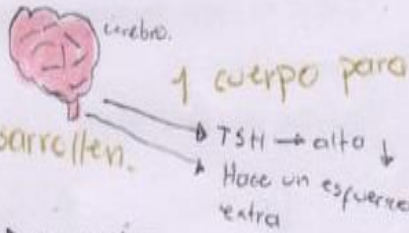 cerebro.
1 cuerpo para
sarrollen.
TSH → alto ↓
Hace un esfuerzo
extra